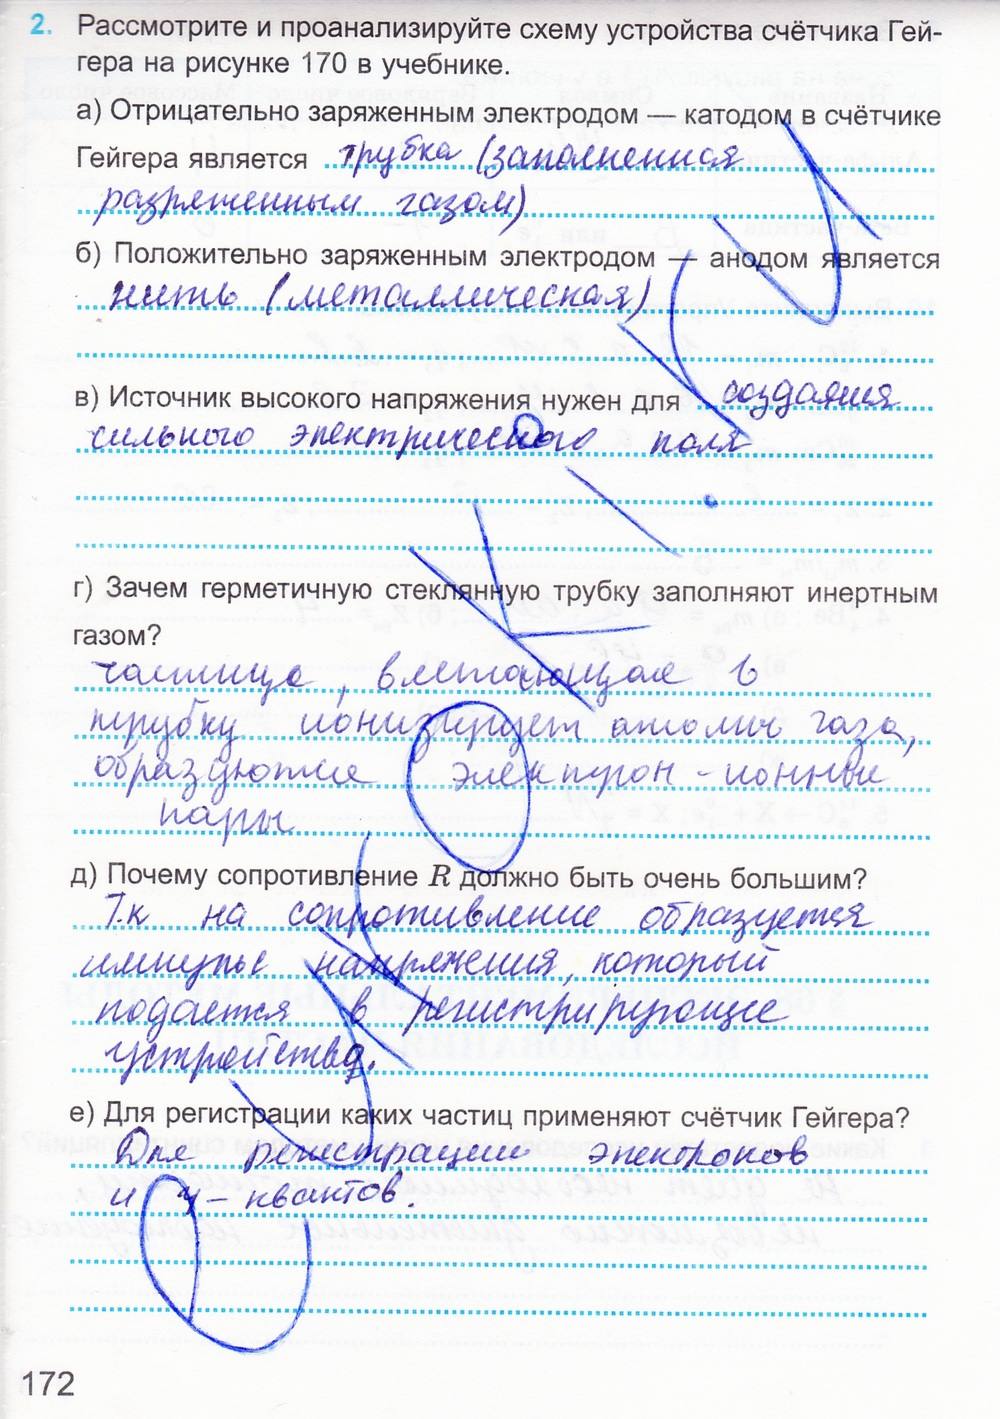 2. Рассмотрите и проанализируйте схему устройства счётчика Гей-
гера на рисунке 170 в учебнике.
а) Отрицательно заряженным электродом — катодом в счётчике
Гейгера является трубка (заполненная
разряженным газом)
б) Положительно заряженным электродом — анодом является
нить (металлическая)
в) Источник высокого напряжения нужен для создания
сильного электрического поля
г) Зачем герметичную стеклянную трубку заполняют инертным
газом?
частица, влетающая в
трубку ионизирует атомы газа,
образуются электрон-ионные
пары
д) Почему сопротивление R должно быть очень большим?
Т.к на сопротивление образуется
импульс напряжения, который
подается в регистрирующие
устройства.
е) Для регистрации каких частиц применяют счётчик Гейгера?
Для регистрации электронов
и γ-квантов.
172